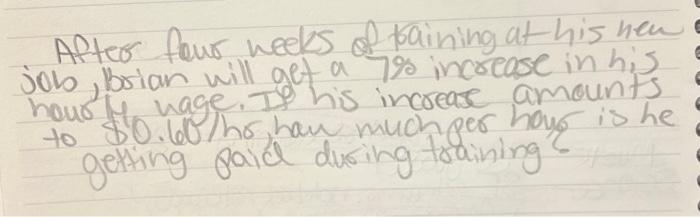 After four weeks of training at his new
job, Brian will get a 7% increase in his
hourly wage. If his increase amounts
to $0.60/hr, how much per hour is he
getting paid during training?